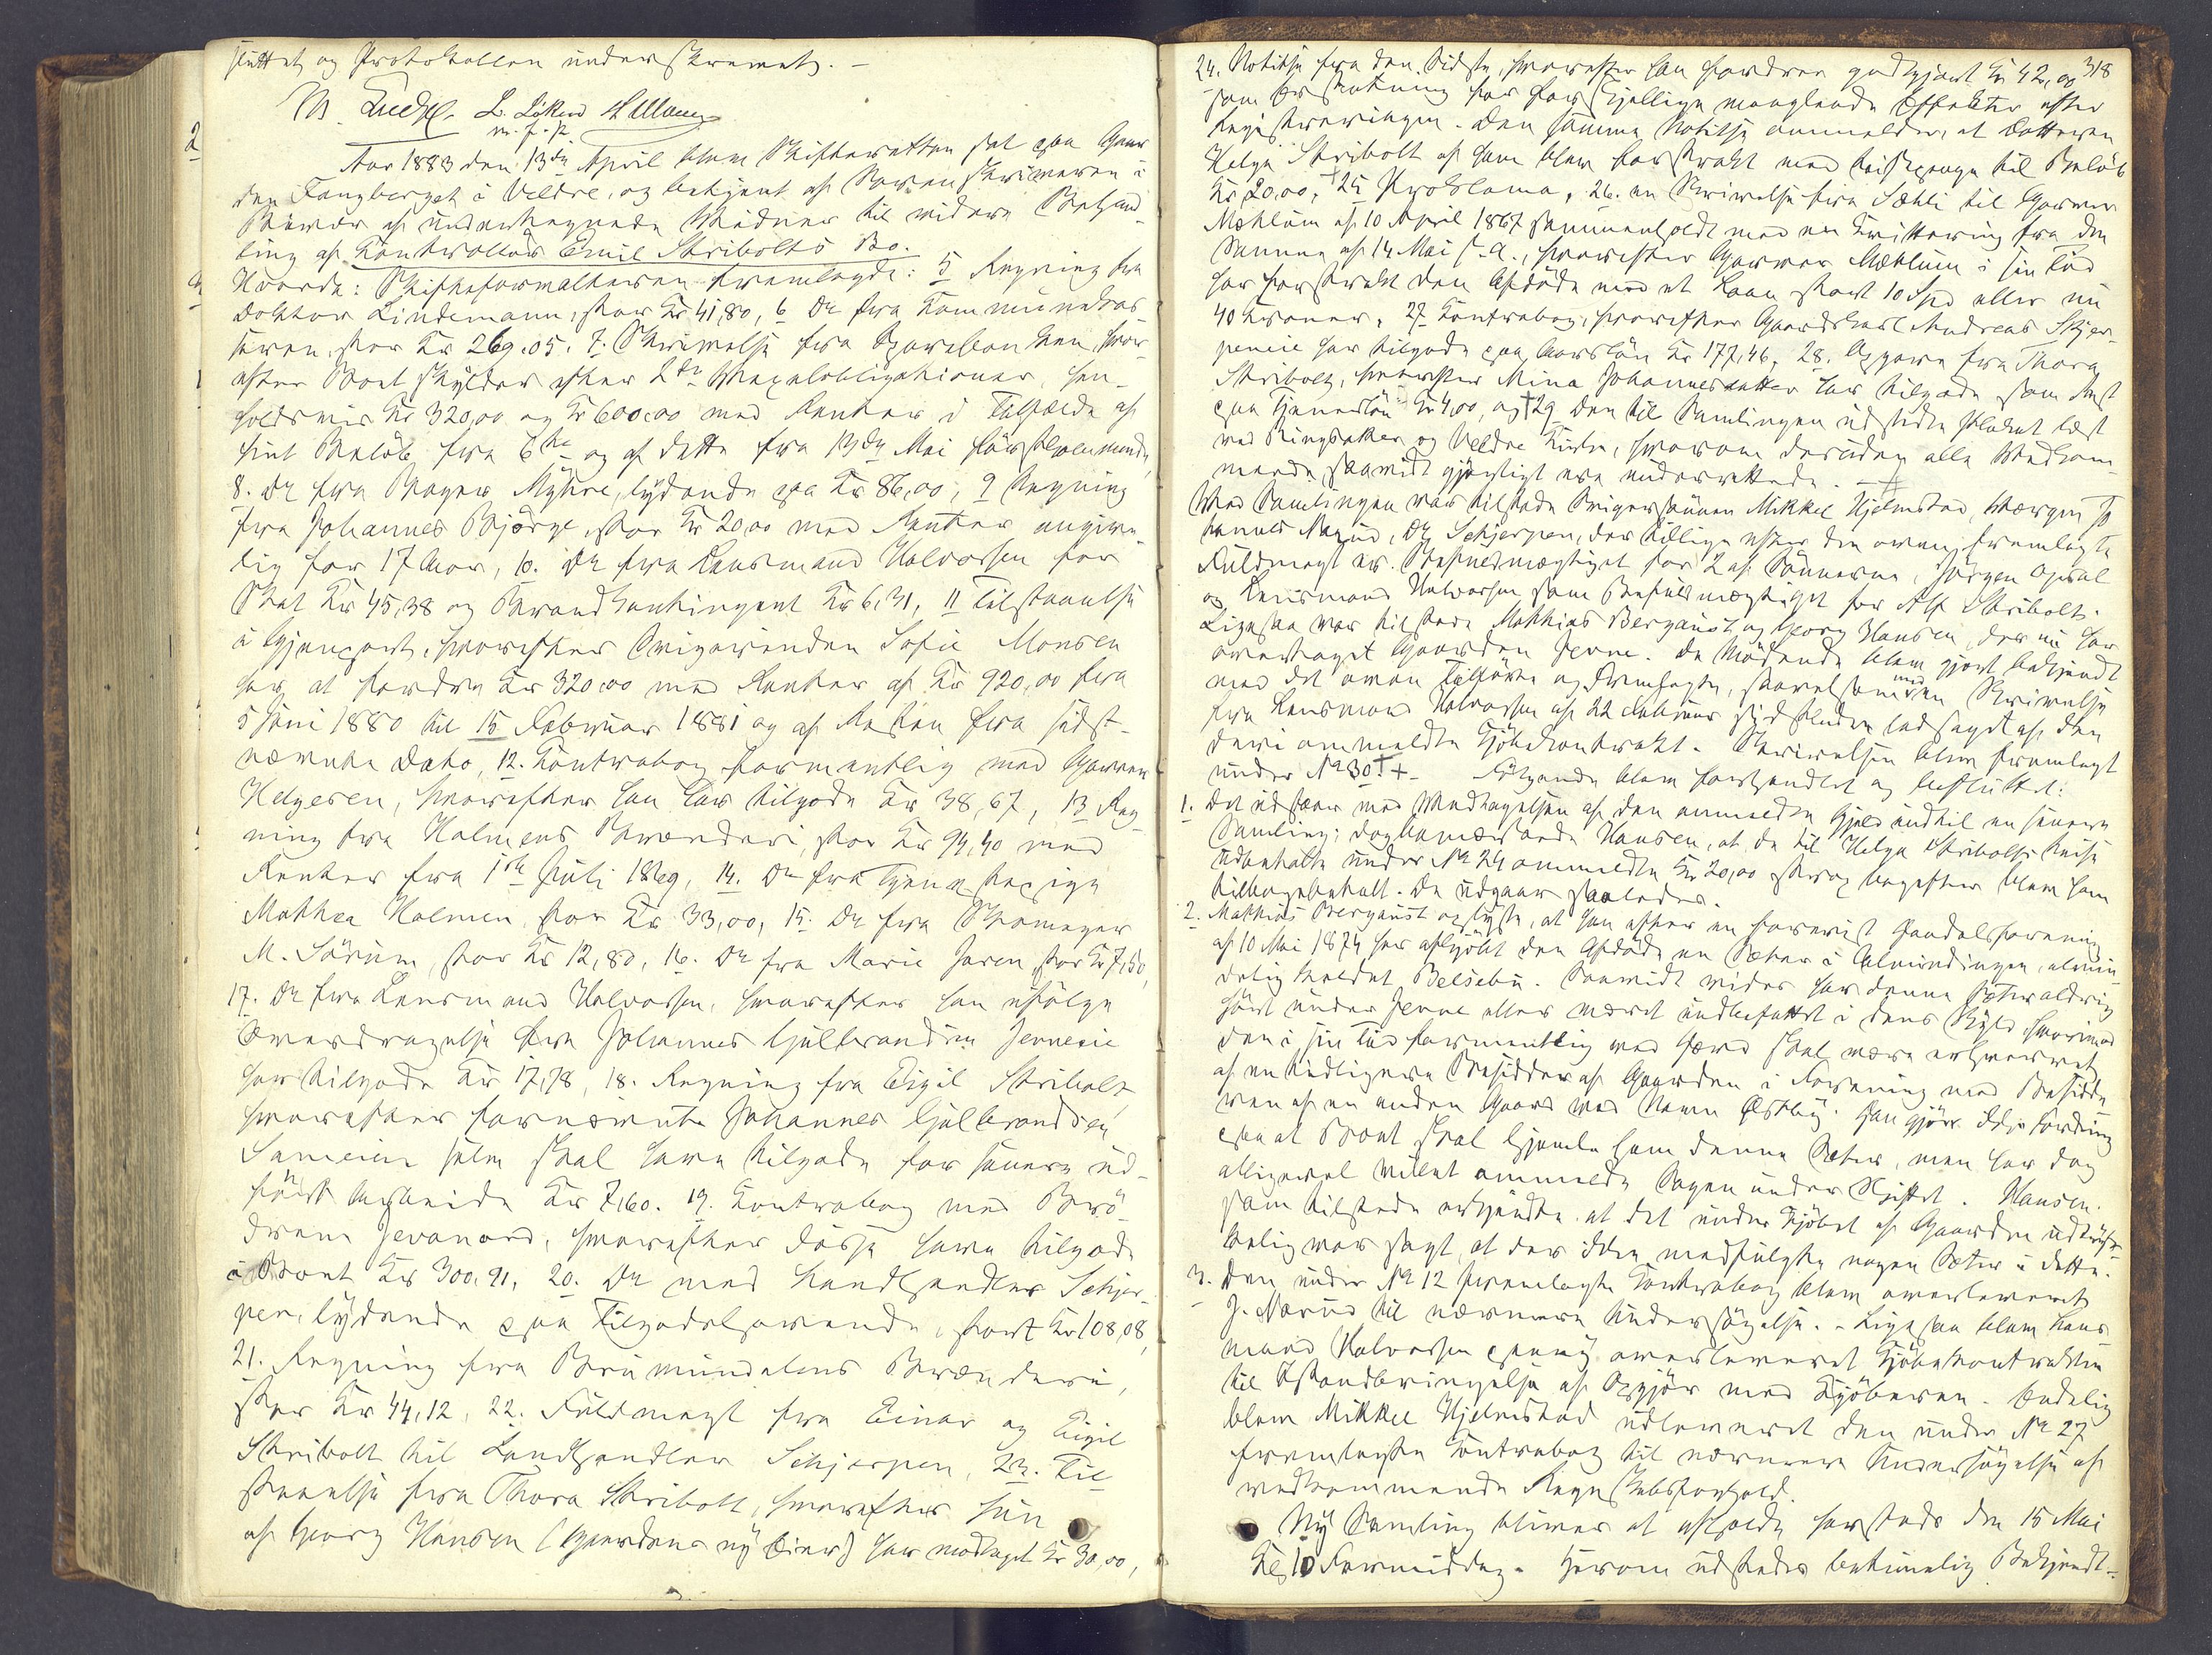 sluttet og Protokollen underskrevet. –
L. Löken H. Moung
m. f. P.
2
Aar 1883 den 13de April blev Skifteretten sat paa Gaar
den Fangberget i Veldre, og betjent af Sorenskriveren i
af undertegnede Vidner til videre Behand-
ling af Kontrollør Emil Stribolts Bo.
Hvorda: Skifteforvalteren fremlagde: 5 Regning fra
Doktor Lindemann, stor Kr 41,80, 6 Do fra Kommunekas-
seren, stor Kr 269.05. 7. Skrivelse fra Sparebanken, hvor-
efter Boet skylder efter 2de Vexelobligationer, hen-
holdsvis Kr 320,00 og Kr 600,00 med Renter i Tilfælde af
hint Beløb fra 6te og af dette fra 13de Mai førstkommende,
8. Do fra Bager Myhre, lydende paa Kr 86,00, 9 Regning
fra Johannes Bjørge, stor Kr 20,00 med Renter angive-
lig for 17 Aar, 10. Do fra Lensmand Halvorsen for
Skat Kr 45,38 og Brandkontingent Kr 6,31, 11 Tilstaaelse
i Gjenpart, hvorefter Svigerinden Sofie Monsen
har at fordre Kr 320,00 med Renter af Kr 920,00 fra
5 Juni 1880 til 15 Februar 1881 og af Resten fra sidst-
nævnte Dato, 12. Kontrabog formentlig med Garver
Helgesen, hvorefter han har tilgode Kr 38,67, 13 Reg-
ning fra Holmens Brænderi, stor Kr 94,40 med
Renter fra 1ste Juli 1869, 14. Do fra Tjenestepige
Mathea Holmen, stor Kr 33,00, 15. Do fra Skomager
M. Sörum, stor Kr 12,80, 16. Do fra Marie Jaren, stor Kr 7,50,
17. Do fra Lensmand Halvorsen, hvorefter han ifølge
Overdragelse fra Johannes Gulbrandsen Jenneeie
har tilgode Kr 17,78, 18. Regning fra Eigil Stribolt,
hvorefter fornævnte Johannes Gulbrandsen
selv skal have tilgode for senere ud-
ført Arbeide Kr 7,60. 19. Kontrabog med Brø-
drene Jevanord, hvorefter disse have tilgode
i Boet Kr 300,91, 20. Do med Landhandler Schjer-
pen, lydende paa Tilgodehavende, stort Kr 108,08,
21. Regning fra Brumunddalens Brænderi,
stor Kr 44,12, 22. Fuldmagt fra Einar og Eigil
Stribolt til Landhandler Schjerpen, 23. Til-
staaelse fra Thora Stribolt, hvorefter hun
af Georg Hansen (Gaardens ny Eier) har modtaget Kr 30,00,
318
24. Notitse fra den Sidste, hvorefter han fordrer godtgjort Kr 42,00
som Erstatning for forskjellige manglende Effekter efter
Registreringen. Den samme Notitse anmelder, at Datteren
Helga Stribolt af ham blev forstrakt med Reisepenge til Beløb
Kr 20,00, 25 Proklama, 26. en Skrivelse fra Sæhli til Garver
Mæhlum af 10 April 1867 sammenholdt med en Kvittering fra den
Samme af 14 Mai s. A., hvorefter Garver Mæhlum i sin Tid
har forstrakt den Afdøde med et Laan stort 10 Spd eller nu
40 Kroner, 27 Kontrabog, hvorefter Gaardskarl Andreas Skjer-
peneie har tilgode paa Aarsløn Kr 177,46, 28. Opgave fra Thora
Stribolt, hvorefter Mina Johannesdatter har tilgode som Rest
paa Tjenerløn Kr 4,00, og 29 den til Samlingen udstedte Plakat læst
ved Ringsaker og Veldre Kirke, hvorom desuden alle Vedkom-
mende saavidt gjørligt ere underrettede. –
Ved Samlingen var tilstede Svigersønnen Mikkel Hjelmstad, Værgen Jo
hannes Narud, O. Schjerpen, der tillige efter den oven fremlagte
Fuldmagt er Befuldmægtiget for 2 af Sønnerne, Jørgen Opsal
og Lensmand Halvorsen som Befuldmægtiget for Alf Stribolt.
Ligesaa var tilstede Mathias Bergaust og Georg Hansen, der nu har
overtaget Gaarden Jenne. De Mødende blev gjort bekjendt
med det oven Tilførte og Fremlagte, saavelsom med en Skrivelse
fra Lensmand Halvorsen af 22 Februar sidstleden ledsaget af den
deri anmeldte Kjøbekontrakt. Skrivelsen blev fremlagt
under No 30. Følgende blev forhandlet og besluttet:
1. Det udstaar med Vedtagelsen af den anmeldte Gjeld indtil en senere
Samling; dog bemærkede Hansen, at de til Helga Stribolts Reise
udbetalte under No 24 anmeldte Kr 20,00 strax bagefter blev ham
tilbagebetalt. De udgaar saaledes.
2. Mathias Bergaust oplyste, at han efter en forevist Handelsforening
af 10 Mai 1874 har afkjøbt den Afdøde en Sæter i Almindingen, almin-
delig kaldet Belsebu. Saavidt vides har denne Sæter aldrig
hørt under Jenne eller været indbefattet i dens Skyld, hvorimod
den i sin Tid formentlig ved Hævd skal være erhvervet
af en tidligere Besidder af Gaarden i Forening med Besidde
ren af en anden Gaard ved Navn Østby. Han gjør ikke Fordring
paa at Boet skal hjemle ham denne Sæter, men har dog
alligevel villet anmelde Sagen under Skiftet. Hansen
som tilstede erkjendte at det under Kjøbet af Gaarden udtryk-
kelig var sagt, at der ikke medfulgte nogen Sæter i dette.
3. Den under No 12 fremlagte Kontrabog blev overleveret
J. Narud til nærmere Undersøgelse. – Ligesaa blev Lens-
mand Halvorsen paany overleveret Kjøbekontrakten
til Istandbringelse af Opgjør med Kjøberen. Endelig
blev Mikkel Hjelmstad udleveret den under No 27
fremlagte Kontrabog til nærmere Undersøgelse af
vedkommende Regnskabsforhold.
Ny Samling bliver at afholde hersteds den 15 Mai
Kl. 10 Formiddag. Herom udstedes betimelig Bekjendt-